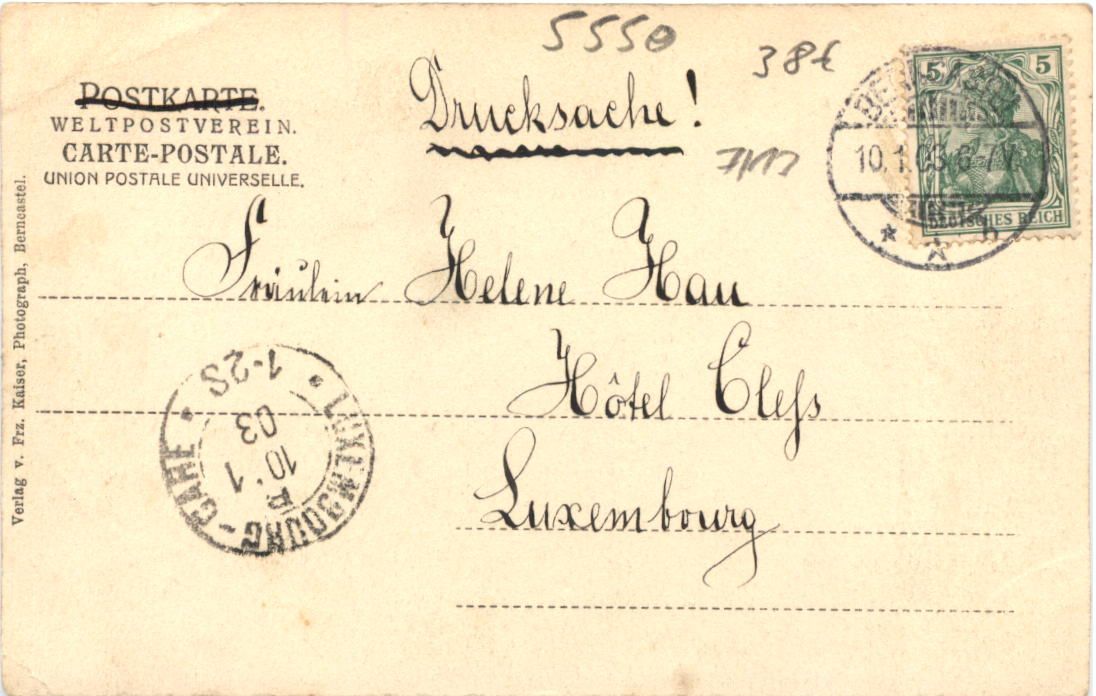 5550
38€
POSTKARTE.
WELTPOSTVEREIN.
CARTE-POSTALE.
UNION POSTALE UNIVERSELLE.
Drucksache!
5 5
DEUTSCHES REICH
10.1.03 6-7V.
Fräulein Helene Hau
Hôtel Cleſs
Luxembourg
LUXEMBOURG-GARE
1-2S
10.1
03
Verlag v. Frz. Kaiser, Photograph, Berncastel.